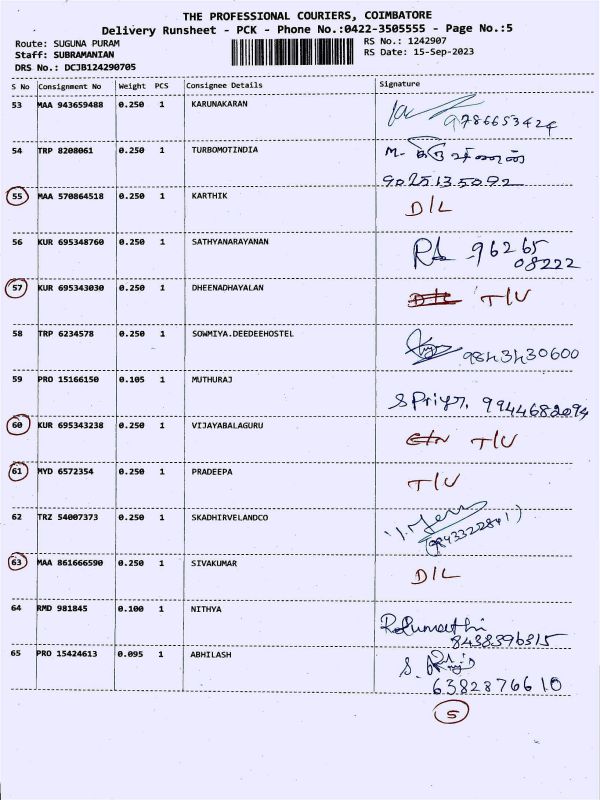 THE PROFESSIONAL COURIERS, COIMBATORE
Delivery Runsheet - PCK - Phone No.:0422-3505555 - Page No.:5
Route: SUGUNA PURAM
RS No.: 1242907
Staff: SUBRAMANIAN
RS Date: 15-Sep-2023
DRS No.: DCJB124290705
S No Consignment No Weight PCS Consignee Details Signature
53 MAA 943659488 0.250 1 KARUNAKARAN
9786653424
54 TRP 8208061 0.250 1 TURBOMOTINDIA M.
9025135092
55 MAA 570864518 0.250 1 KARTHIK D/L
56 KUR 695348760 0.250 1 SATHYANARAYANAN 96265
08222
57 KUR 695343030 0.250 1 DHEENADHAYALAN D/L T/U
58 TRP 6234578 0.250 1 SOWMIYA.DEEDEEHOSTEL
9843430600
59 PRO 15166150 0.105 1 MUTHURAJ
S Priya. 9944682094
60 KUR 695343238 0.250 1 VIJAYABALAGURU T/U
61 MYD 6572354 0.250 1 PRADEEPA T/U
62 TRZ 54007373 0.250 1 SKADHIRVELANDCO
(9843322841)
63 MAA 861666590 0.250 1 SIVAKUMAR D/L
64 RMD 981845 0.100 1 NITHYA
8438396315
65 PRO 15424613 0.095 1 ABHILASH S.
6382876610
5